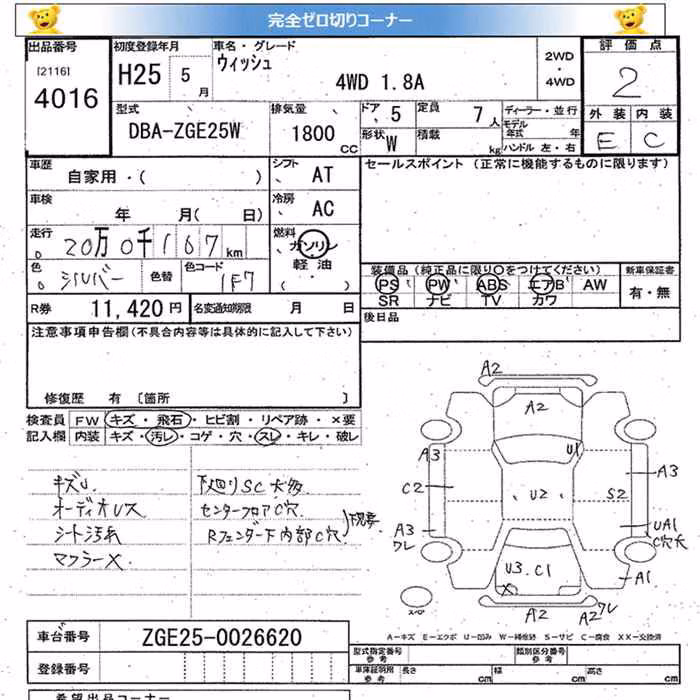 完全ゼロ切りコーナー
出品番号
[2116]
4016
初度登録年月
H25 5月
車名・グレード
ウィッシュ
4WD 1.8A
2WD
・
4WD
評価点
2
外装 内装
E C
型式
DBA-ZGE25W
排気量
1800 CC
ドア 5
定員 7人
形状 W
積載 kg
ディーラー・並行
モデル年式 年
ハンドル 左・右
車歴
自家用・( )
シフト AT
セールスポイント (正常に機能するものに限ります)
車検
年 月( 日)
冷房 AC
走行
20万0千167km
燃料
ガソリン
軽油
色 シルバー 色替 色コード 1F7
装備品(純正品に限り○をつけてください)
PS PW ABS エアB AW
SR ナビ TV カワ
新車保証書
有・無
R券 11,420円
名変通知期限 月 日
後日品
注意事項申告欄(不具合内容等は具体的に記入して下さい)
修復歴 有 [箇所 ]
検査員記入欄
FW キズ・飛石・ヒビ割・リペア跡・×要
内装 キズ・汚レ・コゲ・穴・スレ・キレ・破レ
キズU
オーディオレス
シート汚れ
マフラーX
下廻りSC大多
センターフロアC穴
Rフェンダー下内部C穴
A2
A2
U1
A3
A3
C2
U2
S2
A3
ワレ
UA1
C穴大
U3 C1
X
A1
A2
A2ワレ
スペア
A-キズ E-エクボ U-凹み W-補修跡 S-サビ C-腐食 XX-交換済
車台番号
ZGE25-0026620
登録番号
型式指定番号
参考
類別区分番号
参考
車庫証明用
参考
長さ cm 幅 cm 高さ cm
希望出品コーナー